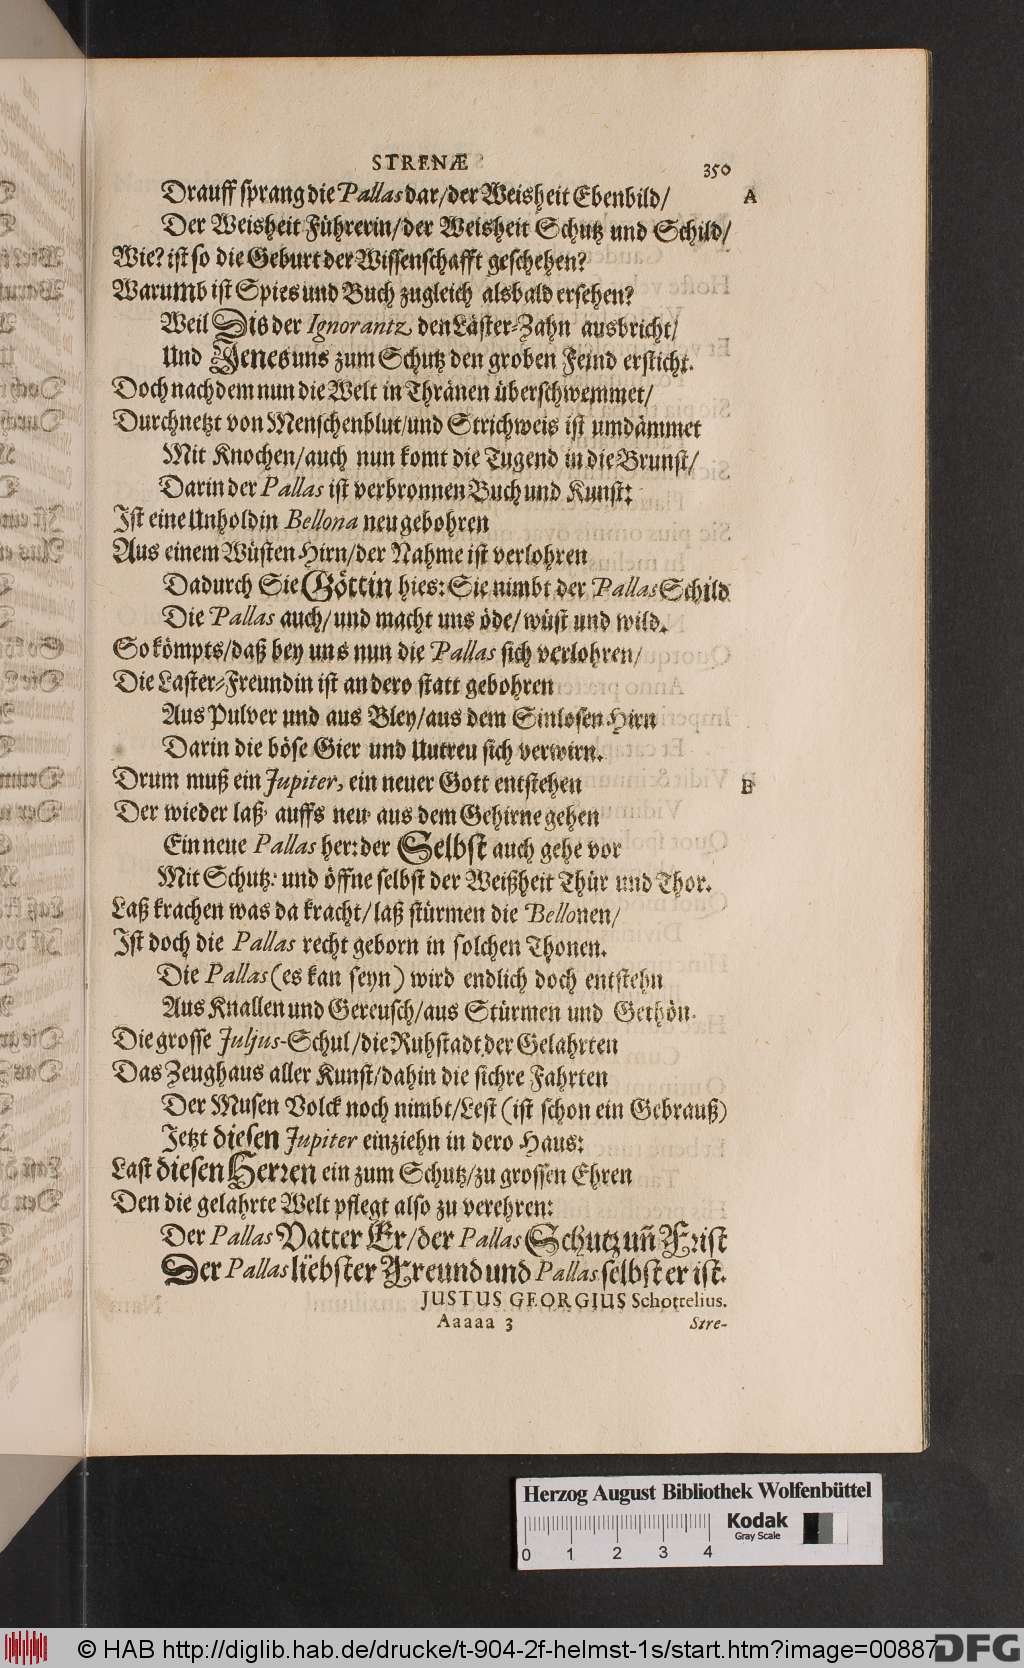 STRENÆ 350
Drauff sprang die Pallas dar/der Weisheit Ebenbild/ A
Der Weisheit Führerin/der Weisheit Schutz und Schild/
Wie? ist so die Geburt der Wissenschafft geschehen?
Warumb ist Spies und Buch zugleich alsbald ersehen?
Weil Dis der Ignorantz den Läster-Zahn ausbricht/
Und Jenes uns zum Schutz den groben Feind ersticht.
Doch nachdem nun die Welt in Thränen überschwemmet/
Durchnetzt von Menschenblut/und Strichweis ist umdämmet
Mit Knochen/auch nun komt die Tugend in die Brunst/
Darin der Pallas ist verbronnen Buch und Kunst:
Ist eine Unholdin Bellona neu gebohren
Aus einem Wüsten Hirn/der Nahme ist verlohren
Dadurch Sie Göttin hies: Sie nimbt der Pallas Schild
Die Pallas auch/und macht uns öde/wüst und wild.
So kömpts/daß bey uns nun die Pallas sich verlohren/
Die Laster-Freundin ist an dero statt gebohren
Aus Pulver und aus Bley/aus dem Sinlosen Hirn
Darin die böse Gier und Untreu sich verwirn.
Drum muß ein Jupiter, ein neuer Gott entstehen B
Der wieder laß auffs neu aus dem Gehirne gehen
Ein neue Pallas her: der Selbst auch gehe vor
Mit Schutz: und öffne selbst der Weißheit Thür und Thor.
Laß krachen was da kracht/laß stürmen die Bellonen/
Ist doch die Pallas recht geborn in solchen Thonen.
Die Pallas (es kan seyn) wird endlich doch entstehn
Aus Knallen und Gereusch/aus Stürmen und Gethön.
Die grosse Juljus-Schul/die Ruhstadt der Gelahrten
Das Zeughaus aller Kunst/dahin die sichre Fahrten
Der Musen Volck noch nimbt/Lest (ist schon ein Gebrauß)
Jetzt diesen Jupiter einziehn in dero Haus:
Last diesen Herren ein zum Schutz/zu grossen Ehren
Den die gelahrte Welt pflegt also zu verehren:
Der Pallas Vatter Er/der Pallas Schutz uñ Frist
Der Pallas liebster Freund und Pallas selbst er ist.
JUSTUS GEORGIUS Schottelius.
Aaaaa 3 Stre-
Herzog August Bibliothek Wolfenbüttel
Kodak
Gray Scale
0 1 2 3 4
© HAB http://diglib.hab.de/drucke/t-904-2f-helmst-1s/start.htm?image=00887
DFG